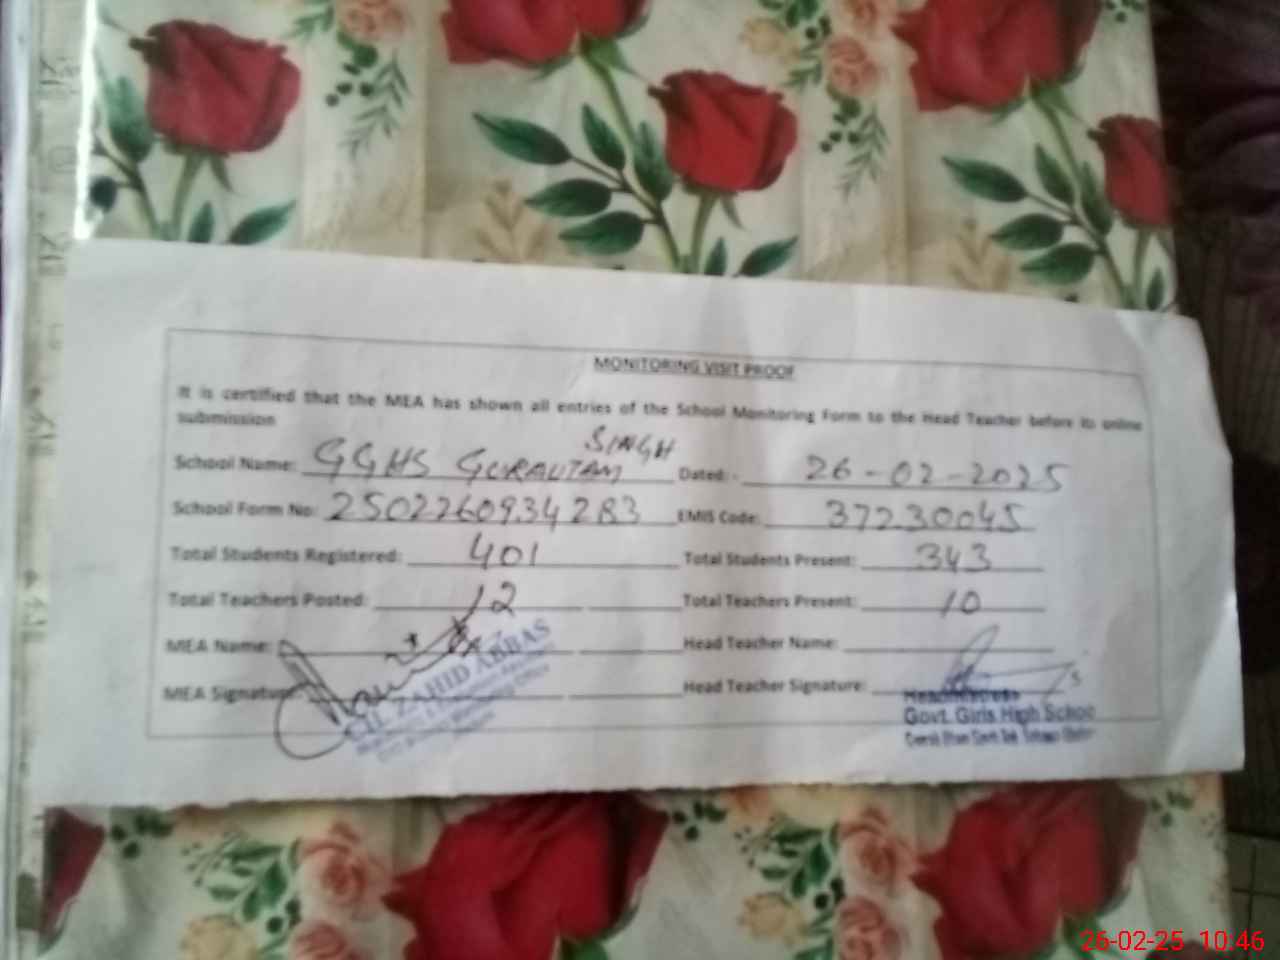 MONITORING VISIT PROOF
It is certified that the MEA has shown all entries of the School Monitoring Form to the Head Teacher before its online
submission
School Name: GGHS GURAUTAM SINGH Dated:- 26-02-2025
School Form No: 2502260934283 EMIS Code: 37230045
Total Students Registered: 401 Total Students Present: 343
Total Teachers Posted: 12 Total Teachers Present: 10
MEA Name: Head Teacher Name:
MEA Signature: Head Teacher Signature:
ZAHID ABBAS
Headmistress
Govt. Girls High School
26-02-25 10:46